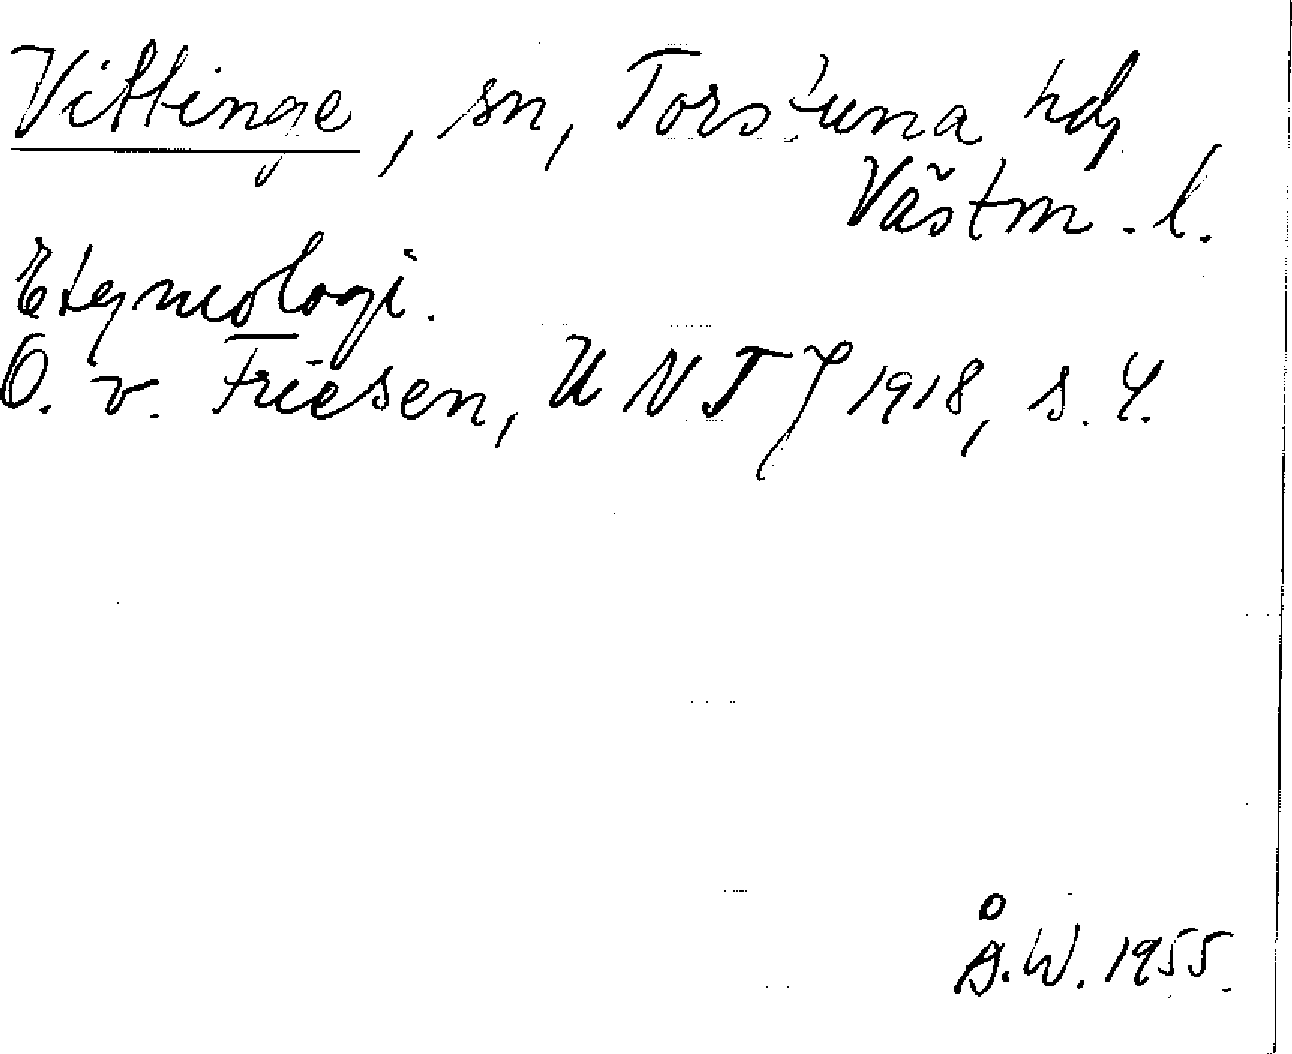 Vittinge, sn, Torstuna hd,
Västm. l.
Etymologi.
O. v. Friesen, UNT 1918, s. 4.
Å.W. 1955.